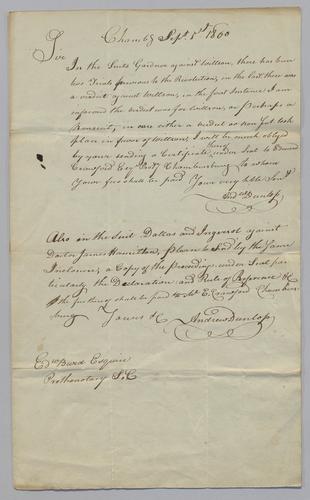 Chambg Sept. 1st 1800
Sir
In the Suits Gardner against Willson, there has been
two Trials previous to the Revolution, in the last there was
a verdict against Willson, in the first Instance I am
informed the verdict was for Willson, or perhaps a
Nonsuit, in case either a verdict or non Suit took
place in favor of Willson, I will be much obliged
by your sending a Certificate under Seal to Edward
Crawford Esqr. Chambersburg to whom
Your fees shall be paid Your very hble Servt
Andw Dunlop
Also in the Suit Dallas and Ingersol against
Doctor James Hamilton, please to send by the Same
Inclosure, a Copy of the Proceedings under Seal par
ticularly the Declaration and Rule of Reference &c
& the fees thereof shall be paid to Mr E. Crawford Chambers
burg Yours &c Andrew Dunlop
Edwd Burd Esquire
Prothonotary S. C